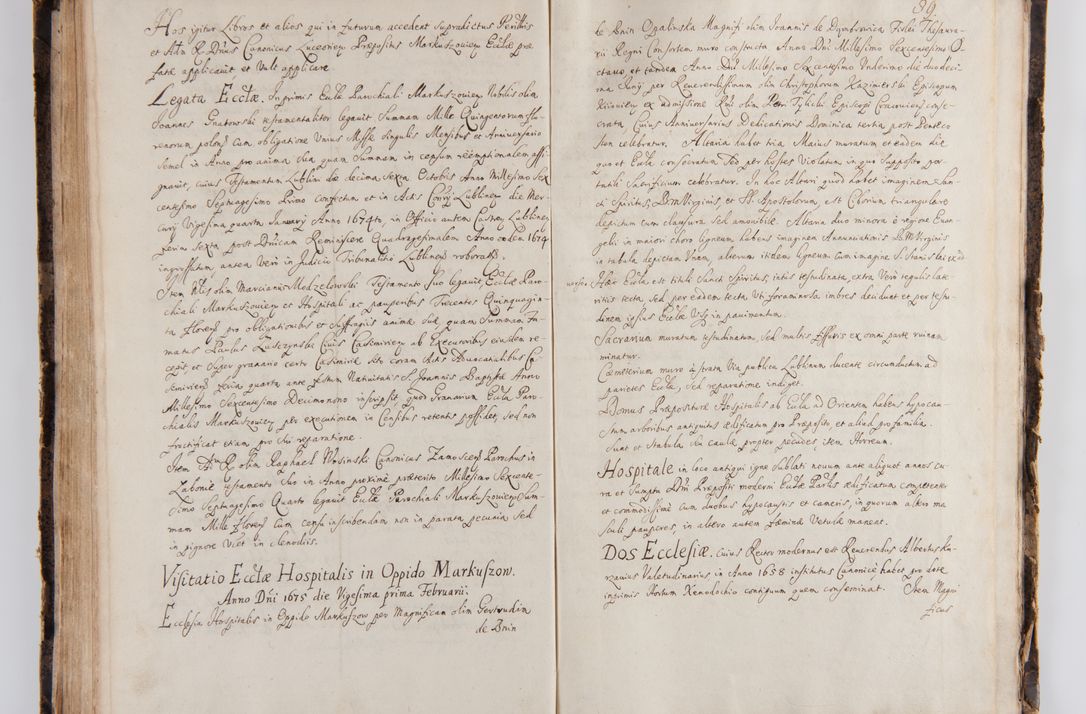 Hos igitur Libros et alios qui in futurum accedent supradictus Perillris
et Adm R. Dnus Canonicus Luceorien Præpositus Markuszouien Ecclæ præ
fatæ applicauit et Vult applicare
Legata Ecclæ. In primis Ecclæ Parochiali Markuszouien Nobilis olim
Joannes Gnatowski testamentaliter legauit Summam Mille Quingentorum flo
renorum polon. Cum obligatione Vnius Missæ singulis Mensibus et Anniuersario
semel in Anno pro anima sua quam Summam in censum reëmptionalem assi
gnauit, cuius Testamentum Lublini die decima Sexta Octobris Anno Millesimo Sex
centesimo Septuagesimo Primo Confectum et in Actis Consij Lublinen die Mer
curij Vigesima quarta Januarij Anno 1674to, in Officio autem Castren Lublinen
feria Sexta post Dnicam Reminiscere Quadragesimalem Anno eodem 1674
ingrossatum antea Verò in Judicio Tribunalitio Lublinen roborat.
Item Nblis olim Marcianus Modzelowski Testamento suo legauit Ecclæ Paro-
chiali Markuszouien et Hospitali ac pauperibus Trecentos Quinquagin-
ta florens pro obligationibus et Suffragijs animæ suæ quam Summam Fa-
matus Paulus Ruszczynski Ciuis Casimirien ab Executoribus eiusdem re-
cepit et Super granario certo Casimiriæ sito coram Actis Aduocatialibus Ca-
simirien feria quarta ante festum Natiuitatis S. Joannis Baptistæ Anno
Millesimo Sexcentesimo Decimonono inscripsit, quod Granarium Ecclæ Paro-
chialis Markuszouien per executionem in Censibus retentis possidet, sed non
fructificat etiam pro sui reparatione.
Item Adm R. olim Raphael Wosinski Canonicus Zamoscen Parochus in
Łabonie testamento Suo in Anno proximè præterito Millesimo Sexcente-
simo Septuagesimo Quarto legauit Ecclæ Parochiali Markuszouien Sum-
mam Mille florens Cum censu inscribendam non in parata pecunia Sed
in pignore Vlet in clenodiis.
Visitatio Ecclæ Hospitalis in Oppido Markuszow.
Anno Dni 1675 die Vigesima prima Februarii.
Ecclesia Hospitalis in Oppido Markuszow per Magnificam olim Gertrudim
de Bnin
89.
de Bnin Opalinska Magnifi olim Joannis de Dąmbrowica Firley Thesaura-
rii Regni Consortem muro constructa Anno Dni Millesimo Sexcentesimo O
ctauo, et tandem Anno Dni Millesimo Sexcentesimo Vndecimo die duodeci
ma Junij per Reuerendissimum olim Christophorum Kazimirski Episcopum
Kiiouien ex admissione Rmi olim Petri Tylicki Episcopi Cracouien conse-
crata, Cuius Anniuersarius Dedicationis Dominica tertia post Penteco
sten celebratur. Altaria habet tria Maius muratum et eadem die
qua et Ecclæ consecratum Sed per hostes Violatum in quo supposito por-
tatili Sacrificium celebratur. In hoc Altari quod habet imaginem San-
cti Spiritus, B.M. Virginis, et SS. Apostolorum, est Ciborium triangulare
depictum cum clausura sed amouibile. Altaria duo minora è regione Euan-
gelii in maiori choro ligneum habens imaginem Annunciationis B.M. Virginis
in tabula depictam Vnam, alterum itidem ligneum Cum imagine S. Stanislai ex ad
Hæc Ecclæ est tituli Sancti Spiritus, intus testudinata, extra Verò tegulis late-
ritiis tecta, Sed per eadem tecta Vti foraminosa imbres decidunt et per testu-
dinem ipsius Ecclæ Vsq in pauimentum.
Sacrarium muratum testudinatum, Sed multis fissuris ex omni parte ruinam
minatur.
Cæmeterium muro à strata Via publica Lublinum ducente circumdatum ad
parietes Ecclæ, Sed reparatione indiget.
Domus Præpositura Hospitalis ab Ecclæ ad Orientem habens hypocau-
stum arboribus antiquitus ædificatum pro Præposito, et aliud pro familia.
Sunt et Stabula ac caulæ propter pecudes item Horreum.
Hospitale in loco antiqui igne sublati nouum ante aliquot annos cu-
ra et Sumptu Dni Præpositi moderni Ecclæ Parlis ædificatum competenter
et commodissimè Cum duobus hypocaustis et cameris, in quorum altero ma
sculi pauperes, in altero autem fæminæ Vetulæ maneat.
Dos Ecclesiæ. Cuius Rector modernus est Reuerendus Albertus Ku-
rzawius Valetudinarius, in Anno 1658 institutus Canonicè, habet pro dote
inprimis Hortum Xenodochio contiguum quem conseminat. Item Magni
ficus